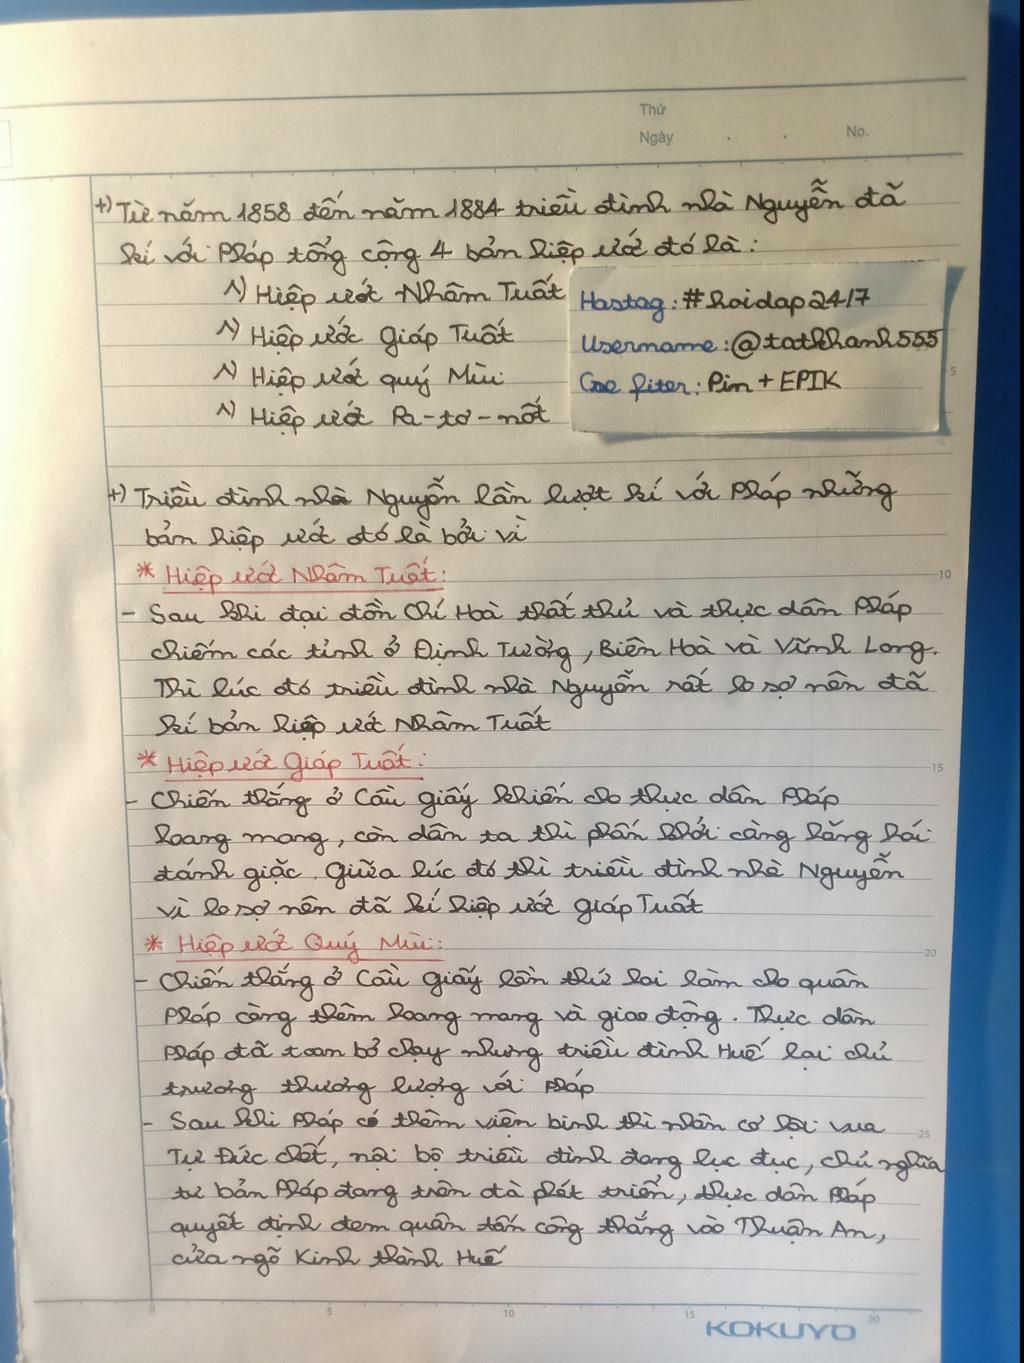 Thứ
Ngày . . No.
+) Từ năm 1858 đến năm 1884 triều đình nhà Nguyễn đã
kí với Pháp tổng cộng 4 bản hiệp ước đó là:
~) Hiệp ước Nhâm Tuất
~) Hiệp ước Giáp Tuất
~) Hiệp ước quý Mùi
~) Hiệp ước Pa-tơ-nốt
Hastag: #hoidap247
Username: @totkhanh555
fiter: Pin + EPIK
5
+) Triều đình nhà Nguyễn lần lượt kí với Pháp những
bản hiệp ước đó là bởi vì
* Hiệp ước Nhâm Tuất:
10
- Sau khi đại đồn Chí Hoà thất thủ và thực dân Pháp
chiếm các tỉnh ở Định Tường, Biên Hoà và Vĩnh Long.
Thì lúc đó triều đình nhà Nguyễn rất lo sợ nên đã
kí bản hiệp ước Nhâm Tuất
* Hiệp ước Giáp Tuất:
15
- Chiến thắng ở Cầu Giấy khiến cho thực dân Pháp
hoang mang, còn dân ta thì phấn khởi càng hăng hái
đánh giặc. Giữa lúc đó thì triều đình nhà Nguyễn
vì lo sợ nên đã kí hiệp ước Giáp Tuất
* Hiệp ước Quý Mùi:
20
- Chiến thắng ở Cầu Giấy lần thứ hai làm cho quân
Pháp càng thêm hoang mang và giao động. Thực dân
Pháp đã toan bỏ chạy nhưng triều đình Huế lại chủ
trương thương lượng với Pháp
- Sau khi Pháp có thêm viện binh thì nhân cơ hội vua
25
Tự Đức chết, nội bộ triều đình đang lục đục, chủ nghĩa
tư bản Pháp đang trên đà phát triển, thực dân Pháp
quyết định đem quân tấn công thẳng vào Thuận An,
cửa ngõ Kinh thành Huế
0 5 10 15 20
KOKUYO